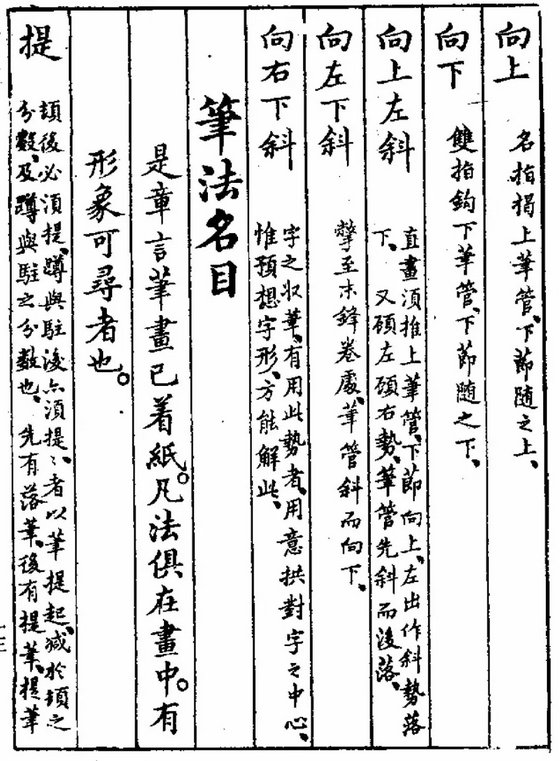 向上 名指揭上筆管、下節隨之上、
向下 雙指鈎下筆管、下節隨之下、
向上左斜 直畫須推上筆管、下節向上、左出作斜勢落
下、又碩左碩右勢、筆管先斜而後落、
向左下斜 撆至末鋒卷處、筆管斜而向下、
向右下斜 字之収筆、有用此勢者、用意拱對字之中心、
惟預想字形、方能解此、
筆法名目
是章言筆畫已着紙。凡法俱在畫中。有
形象可尋者也。
提 頓後必須提、蹲與駐後亦須提、〻者以筆提起、減於頓之
分數、及蹲與駐之分數也、先有落筆、後有提筆、提筆
十三